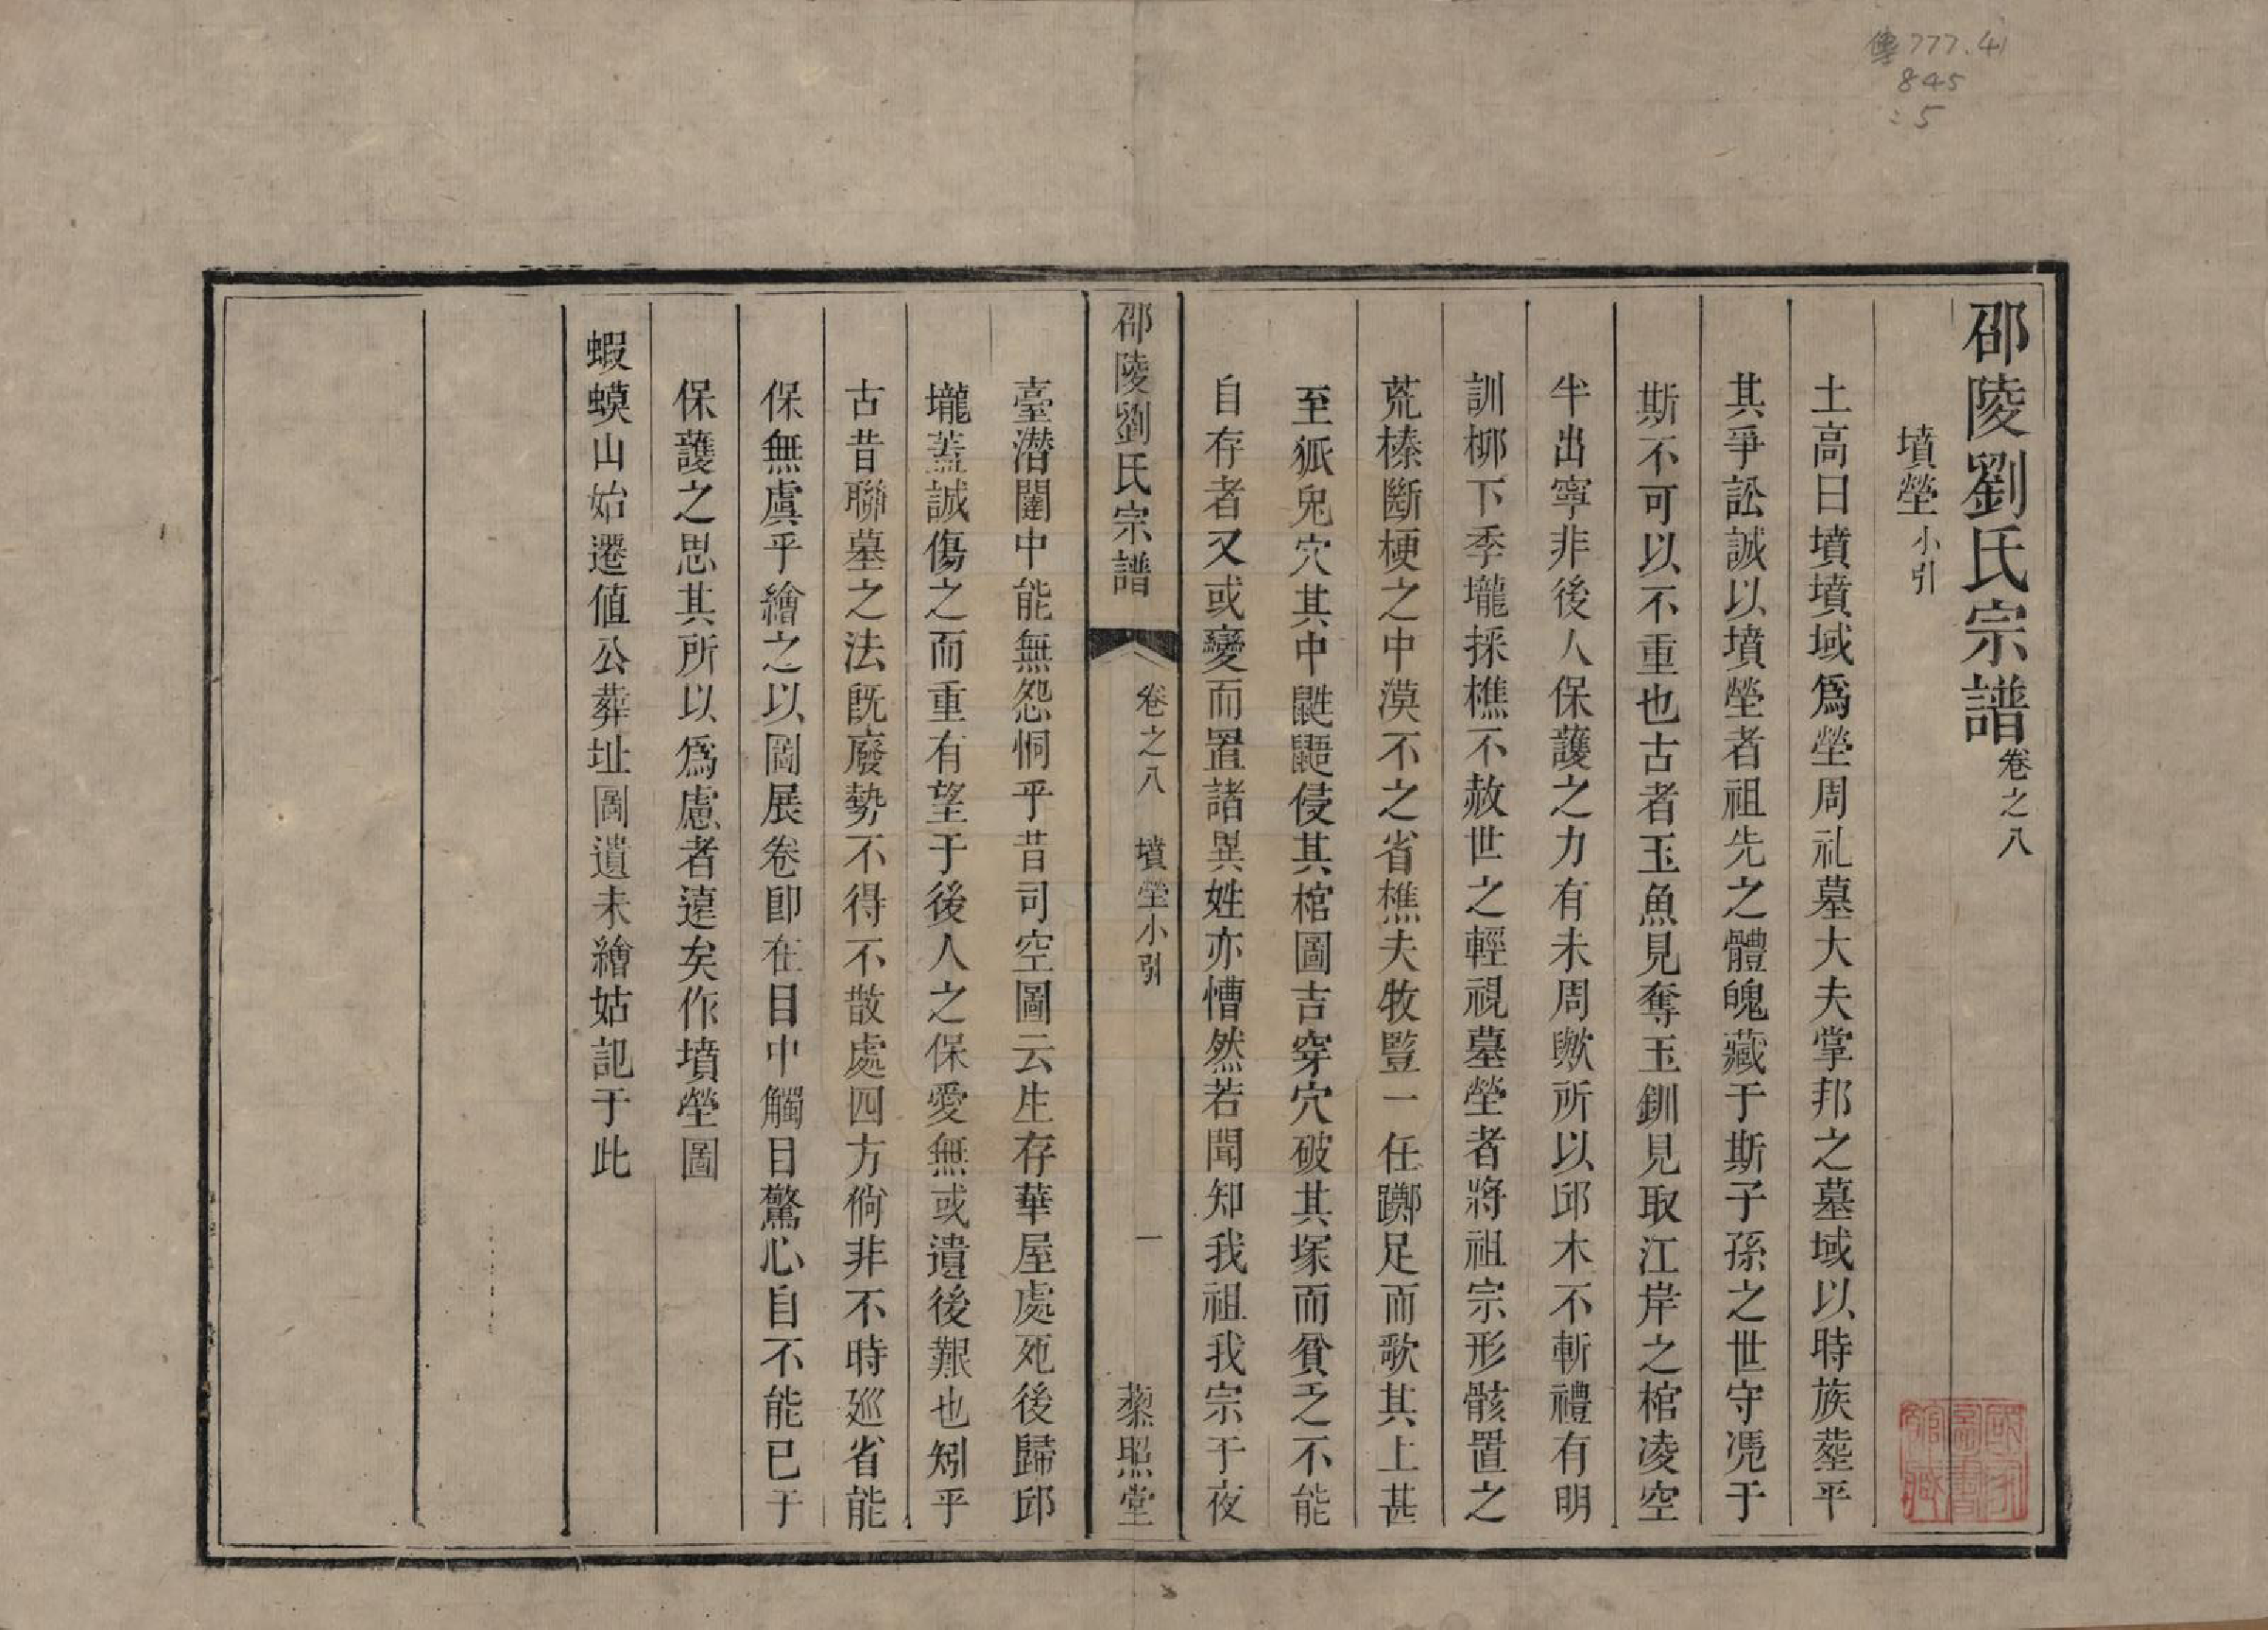 傳777.41
845
:5
邵陵劉氏宗譜卷之八
墳塋小引
土高曰墳墳域爲塋周礼墓大夫掌邦之墓域以時族塟平
其爭訟誠以墳塋者祖先之體魄藏于斯子孫之世守凴于
斯不可以不重也古者玉魚見奪玉釧見取江岸之棺凌空
半出寧非後人保護之力有未周歟所以邱木不斬禮有明
訓柳下季壠採樵不赦世之輕視墓塋者將祖宗形骸置之
荒榛斷梗之中漠不之省樵夫牧豎一任躑足而歌其上甚
至狐兔穴其中鼪鼯侵其棺圖吉穿穴破其塚而貧乏不能
自存者又或變而置諸異姓亦慒然若聞知我祖我宗于夜
邵陵劉氏宗譜
卷之八
墳塋小引
一
藜照堂
臺潜闥中能無怨恫乎昔司空圖云生存華屋處死後歸邱
壠蓋誠傷之而重有望于後人之保愛無或遺後艱也矧乎
古昔聯墓之法旣廢勢不得不散處四方倘非不時廵省能
保無虞乎繪之以圖展卷卽在目中觸目驚心自不能已于
保護之思其所以爲慮者遠矣作墳塋圖
蝦蟆山始遷值公葬址圖遺未繪姑記于此
國家圖書館藏